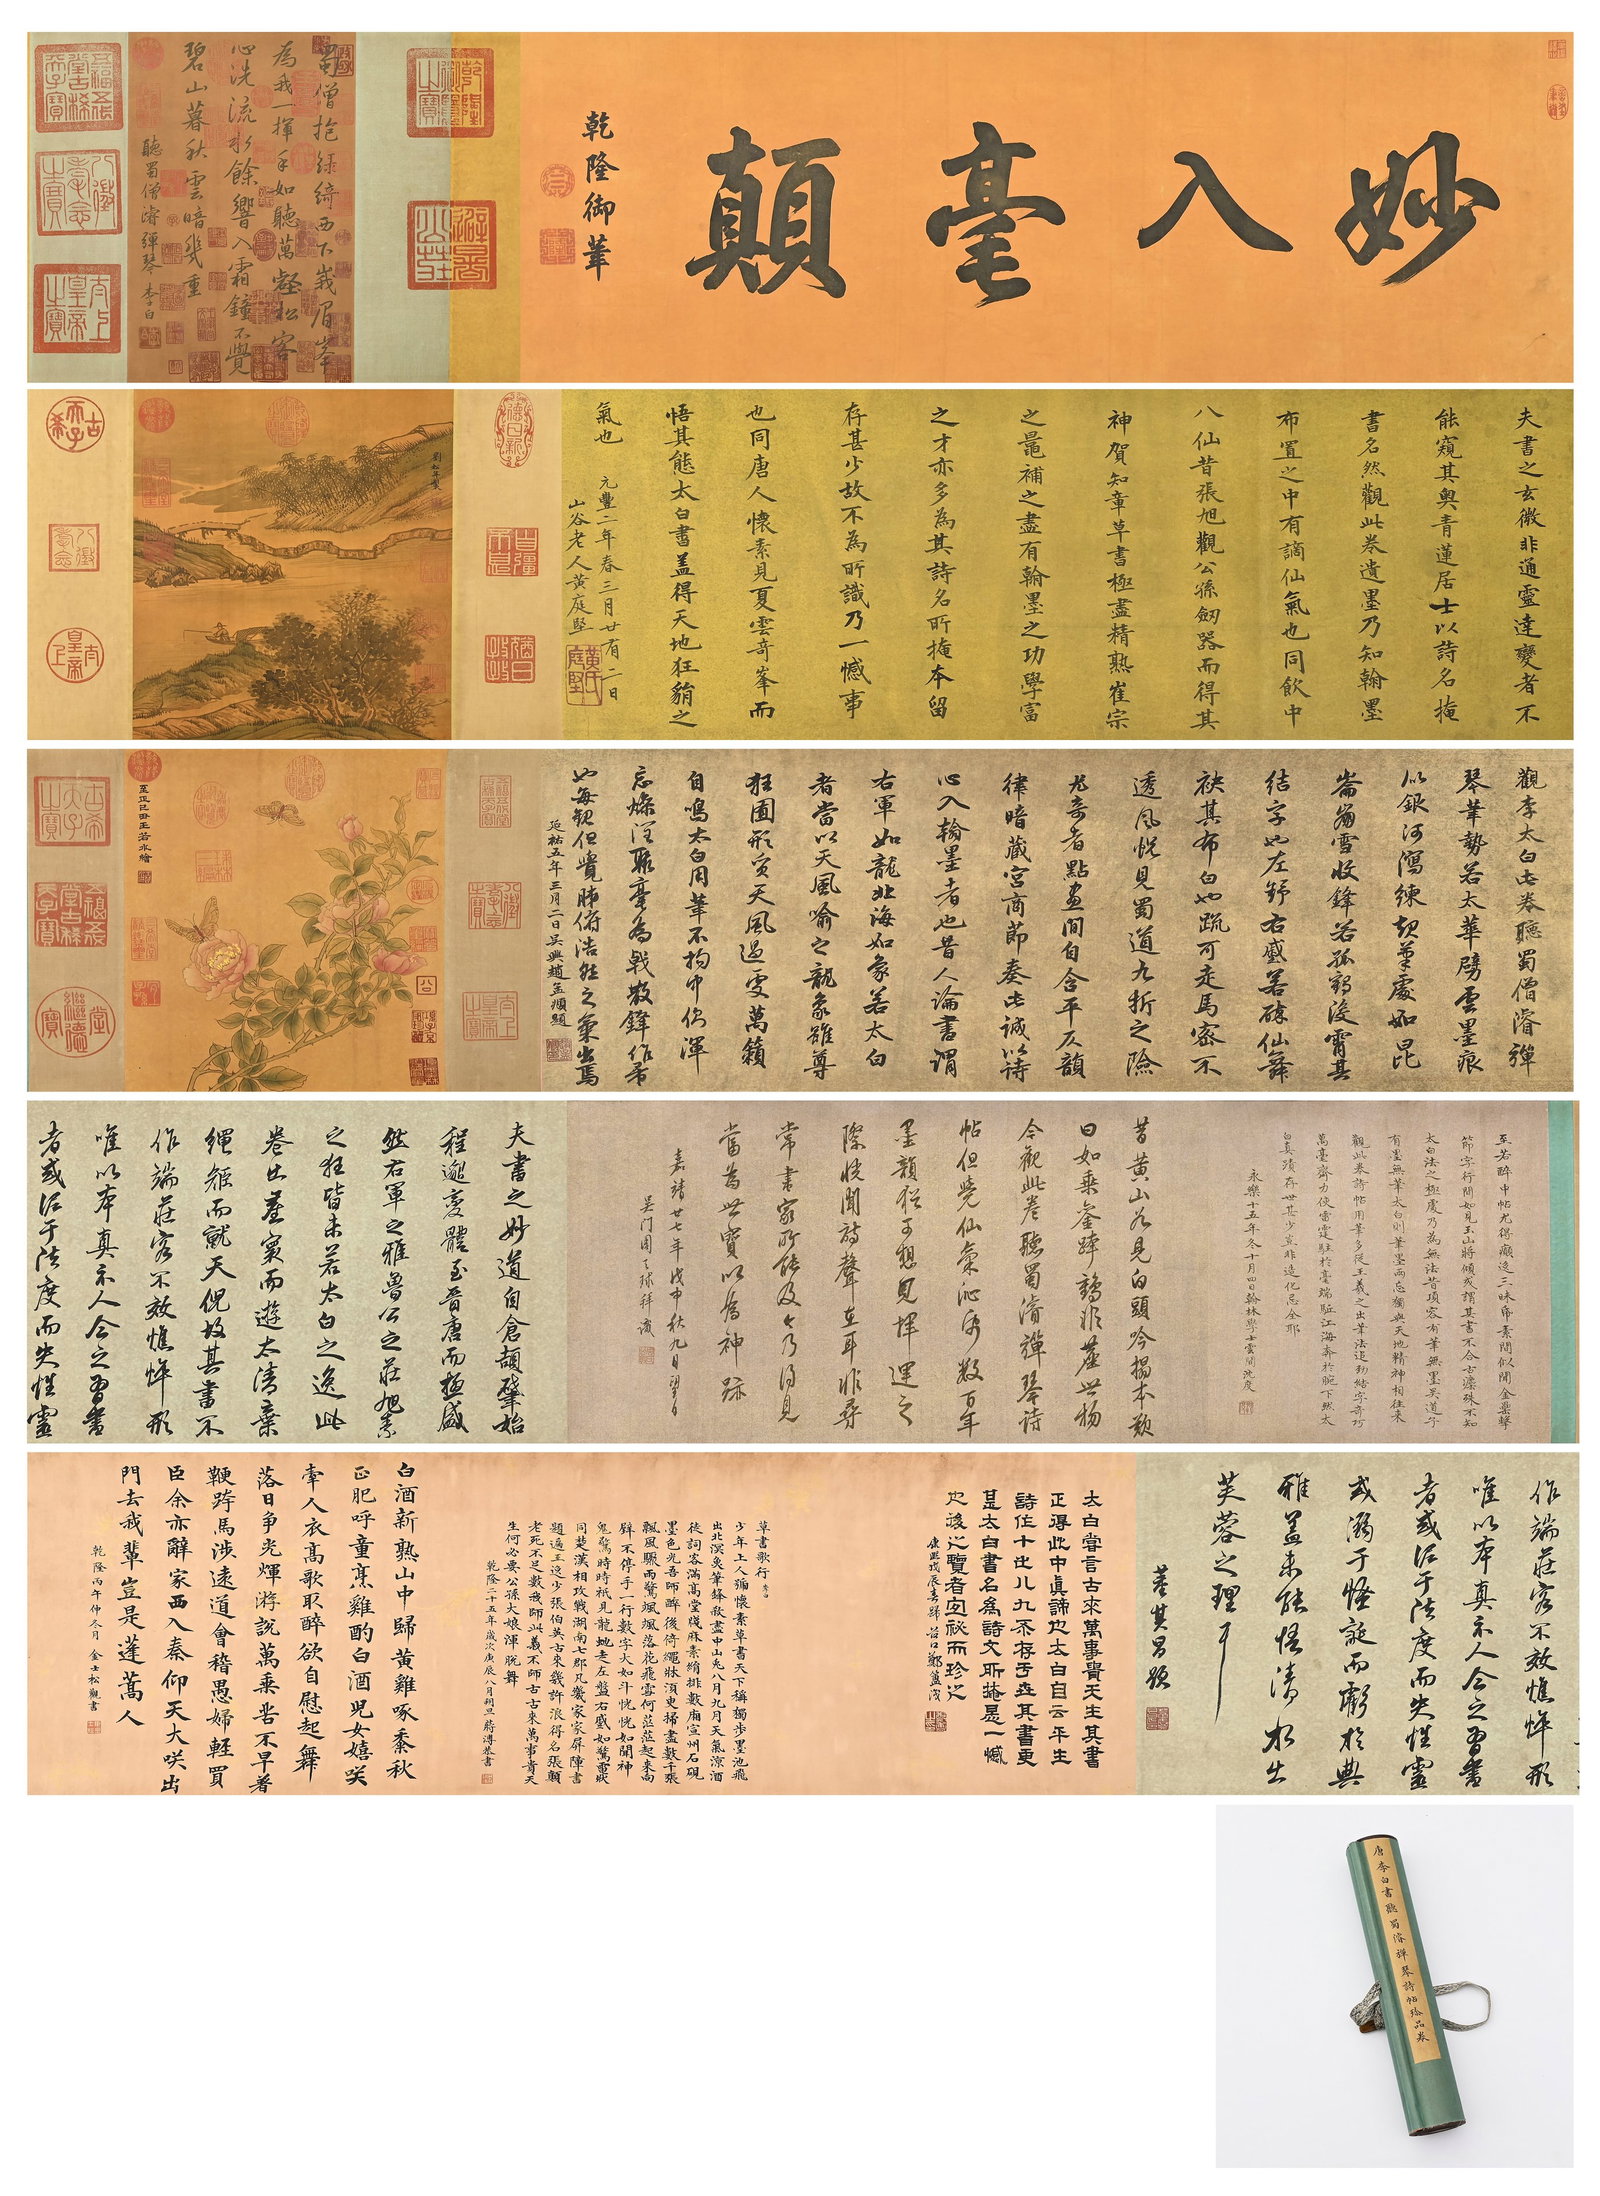 妙入毫顛
乾隆御筆
蜀僧抱綠綺西下峩眉峯
為我一揮手如聽萬壑松客
心洗流水餘響入霜鐘不覺
碧山暮秋雲暗幾重
聽蜀僧濬彈琴李白
夫書之玄微非通靈達變者不
能窺其奧青蓮居士以詩名掩
書名然觀此卷遺墨乃知翰墨
布置之中有謫仙氣也同飲中
八仙昔張旭觀公孫劒器而得其
神賀知章草書極盡精熟崔宗
之最補之盡有翰墨之功學富
之才亦多為其詩名所掩本留
存甚少故不為所識乃一憾事
也同唐人懷素見夏雲奇峯而
悟其態太白書蓋得天地狂貌之
氣也
元豐二年春三月廿有二日
山谷老人黃庭堅
劉松年製
觀李太白此卷聽蜀僧濬彈
琴筆勢若太華劈雲墨痕
似銀河瀉練起筆處如崑
崙崩雪收鋒若孤鶴凌霄其
結字也左舒右盛若醉仙舞
袂其布白也疏可走馬密不
透風恍見蜀道九折之險
尤奇者點畫間自含平仄韻
律暗藏宮商節奏此誠以詩
心入翰墨者也昔人論書謂
右軍如龍北海如象若太白
者當以天風喻之龍象雖尊
狂圉形質天風過處萬籟
自鳴太白用筆不拘中側渾
忘燥潤聚毫為戟散鋒作帚
也每觀但覺肺腑浩然之氣出焉
延祐五年三月二日吳興趙孟頫題
至正己丑王若水繪
至若醉中帖尤得癲逸三昧布素間似聞金石聲
節字行間如見玉山將傾或謂其書不合古法殊不知
太白法之極處乃為無法昔項容有筆無墨吳道子
有墨無筆太白則筆墨兩忘獨與天地精神相往來
觀此卷詩帖用筆多從王羲之出筆法遒勁結字奇巧
萬毫齊力使雷霆駐於毫端驅江海奔於腕下然太
白真蹟存世甚少豈非造化忌全耶
永樂十五年冬十月四日翰林學士雲間沈度
昔黃山谷見白頭吟搨本歎
曰如乘鸞跨鶴非塵世物
今觀此卷聽蜀濬彈琴詩
帖但覺仙氣沁紙數百年
墨韻猶可想見揮運之
際恍聞詩聲在耳非尋
常書家所能及今乃得見
當為世寶以為神跡
嘉靖廿七年戊申秋九月望日
吳門周天球拜識
夫書之妙道自倉頡肇始
程邈變體至晉唐而極盛
然右軍之雅魯公之莊旭素
之狂皆未若太白之逸此
卷出塵寰而遊太清棄
繩矩而就天倪故其書不
作端莊容不效憔悴形
唯以本真示人今之習書
者或泥于法度而失性靈
作端莊容不效憔悴形
唯以本真示人今之習書
者或泥于法度而失性靈
或溺于怪誕而虧於典
雅蓋未能悟清水出
芙蓉之理耳
董其昌題
太白嘗言古來萬事貴天生其書
正得此中真諦也太白自云平生
詩位十出八九不存于世其書更
甚太白書名為詩文所掩是一憾
也後之覽者宜祕而珍之
康熙戊辰春歸谷口鄭簠識
草書歌行 李白
少年上人號懷素草書天下稱獨步墨池飛
出北溟魚筆鋒殺盡中山兔八月九月天氣涼酒
徒詞客滿高堂牋麻素絹排數廂宣州石硯
墨色光吾師醉後倚繩牀須臾掃盡數千張
飄風驟雨驚颯颯落花飛雪何茫茫起來向
壁不停手一行數字大如斗恍恍如聞神
鬼驚時時祇見龍蛇走左盤右蹙如驚電狀
同楚漢相攻戰湖南七郡凡幾家家家屏障書
題遍王逸少張伯英古來幾許浪得名張顛
老死不足數我師此義不師古古來萬事貴天
生何必要公孫大娘渾脫舞
乾隆二十五年歲次庚辰八月朔旦蔣溥恭書
白酒新熟山中歸黃雞啄黍秋
正肥呼童烹雞酌白酒兒女嬉笑
牽人衣高歌取醉欲自慰起舞
落日爭光輝游說萬乘苦不早著
鞭跨馬涉遠道會稽愚婦輕買
臣余亦辭家西入秦仰天大笑出
門去我輩豈是蓬蒿人
乾隆丙午仲冬月 金士松觀書
唐李白書聽蜀濬彈琴詩帖珍品卷